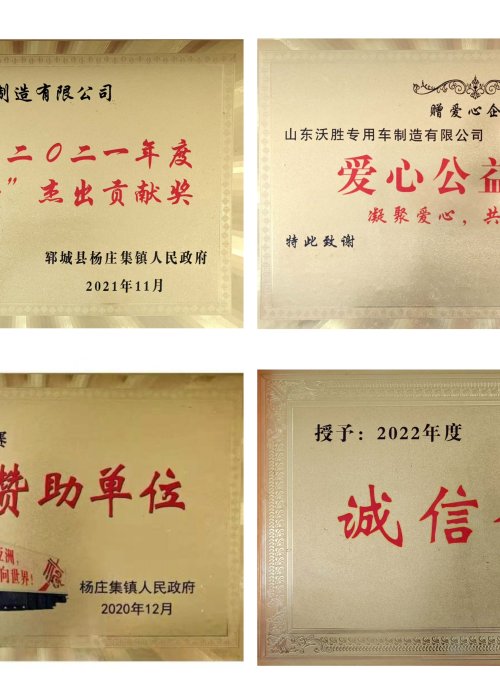 制造有限公司
二〇二一年度
” 杰出贡献奖
郓城县杨庄集镇人民政府
2021年11月
赠爱心企
山东沃胜专用车制造有限公司
爱心公益
凝聚爱心，共
特此致谢
赞助单位
亚洲，
向世界！
杨庄集镇人民政府
2020年12月
授予：2022年度
诚信